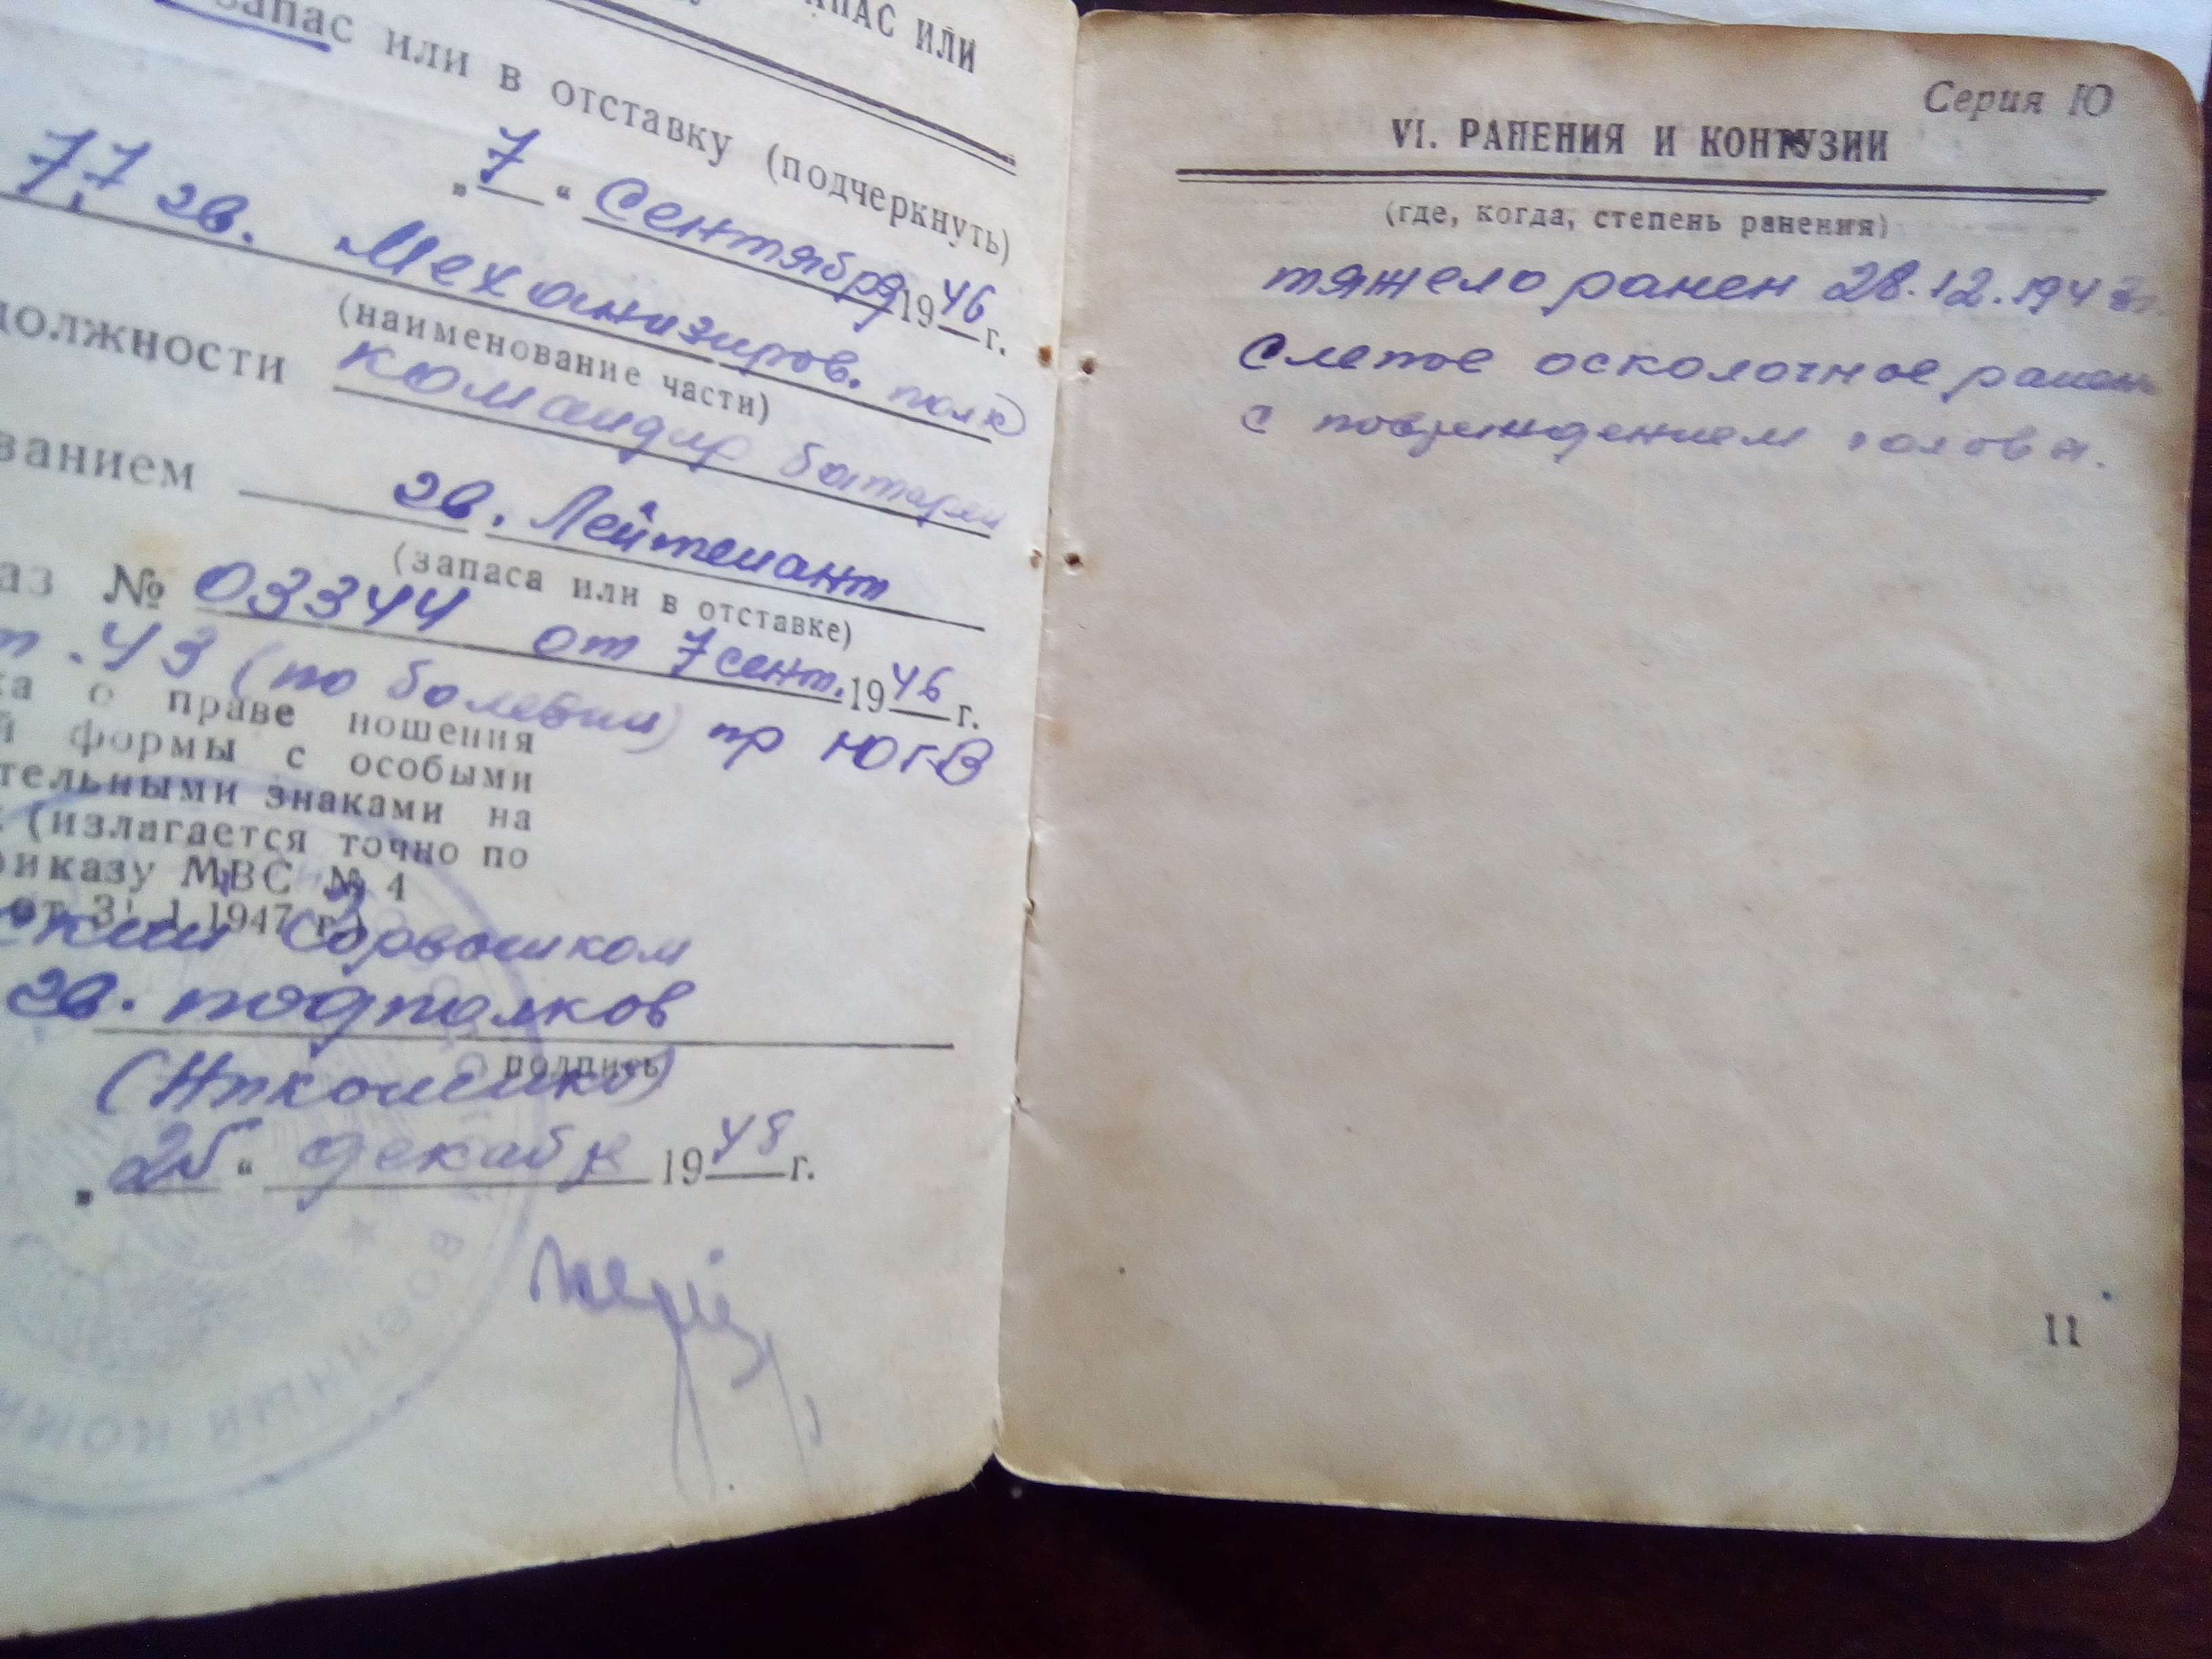 ЗАПАС ИЛИ
запас или в отставку (подчеркнуть)
„ 7 “ Сентября 1946 г.
77 гв. Механизиров. полк
(наименование части)
должности командир батареи
званием гв. Лейтенант
(запаса или в отставке)
аз № 03344 от 7 сент. 1946 г.
т. 43 (по болезни) пр ЮГВ
ка о праве ношения
й формы с особыми
тельными знаками на
(излагается точно по
риказу МВС № 4
от 31.1.1947 г.)
ский
гв. подполков
подпись
„ 25 “ декабр 1948 г.
ВОЕННЫЙ КОМИ
Серия Ю
VI. РАНЕНИЯ И КОНТУЗИИ
(где, когда, степень ранения)
тяжело ранен 28.12.194
Слепое осколочное ранен
с повреждением голова.
11